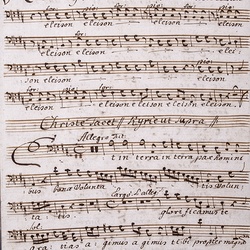 eleison eleison eleison
eleison eleison
son eleison eleison
eleison eleison eleison eleison eleison
Christe tacet // Kyrie ut supra //
Allegro
Et in terra in terra pax homini
bus bonæ volunta tis volun
ta tis. glorificamus te
gra tias a gimus a gimus tibi propter magna